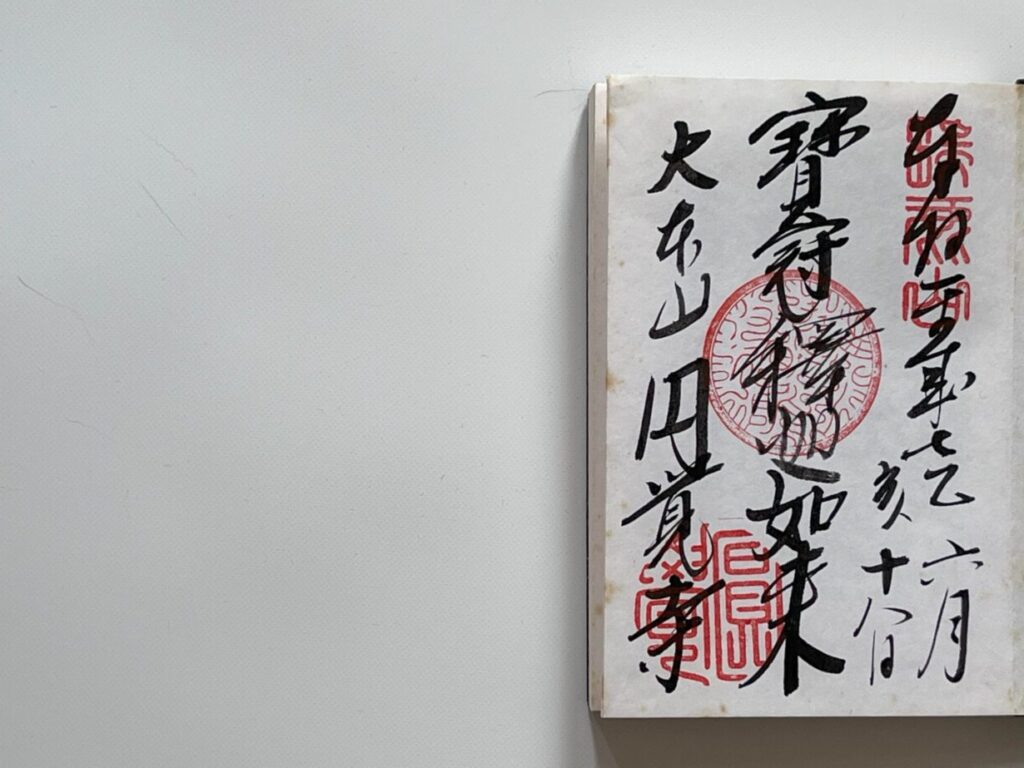 奉拝平成七乙亥六月十八日
瑞鹿山
寶冠釋迦如来
大本山円覚寺